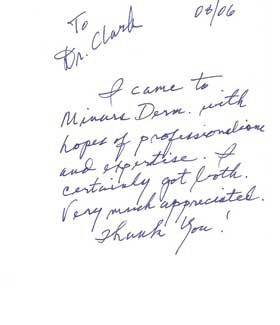 To
Dr. Clark
08/06
I came to
Minars Derm. with
hopes of professionalism
and expertise. I
certainly got both.
Very much appreciated.
Thank You!